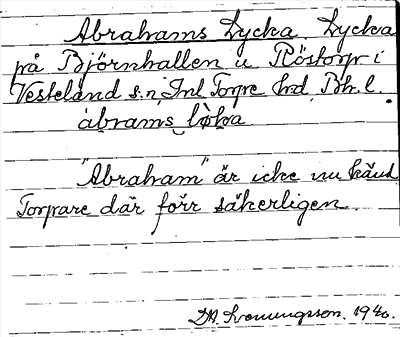 Abrahams Lycka. Lycka
på Björnhallen u Röstorp i
Vesteland s:n, Inl Torpe hd, Bh. l.
àbrams lỳka
"Abraham" är icke nu känd
Torpare där förr säkerligen
1940.